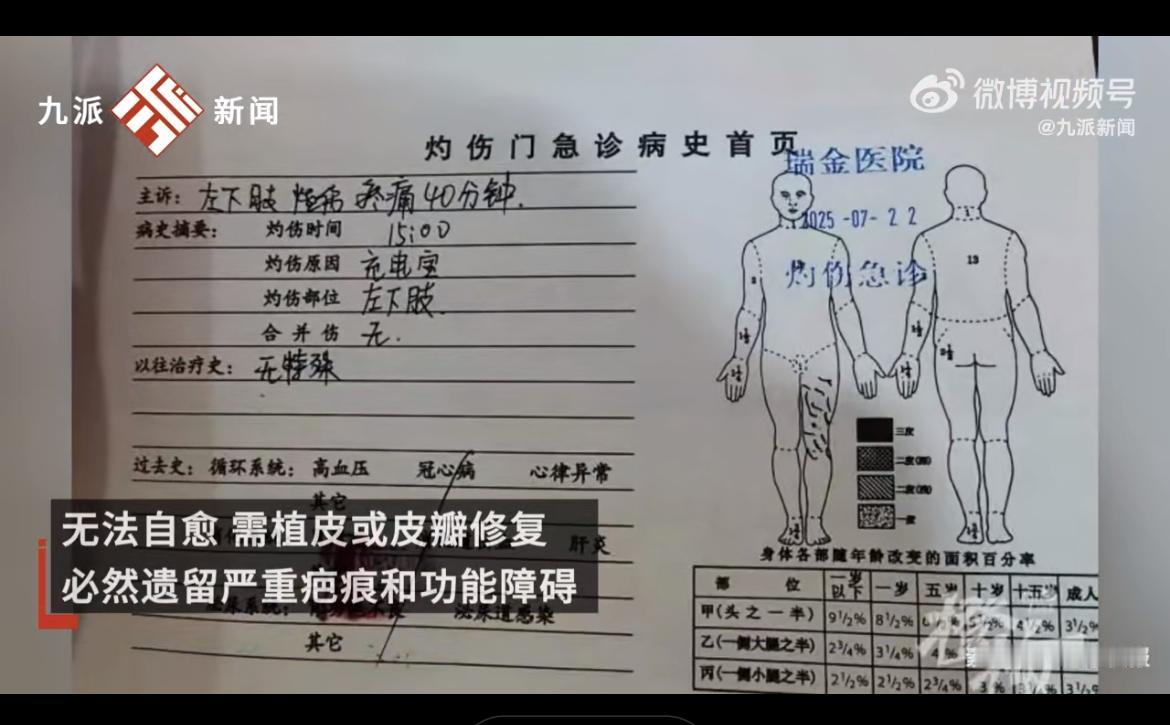 九派 新闻
微博视频号
@九派新闻
灼伤门急诊病史首页
瑞金医院
2025-07-22
灼伤急诊
主诉：左下肢 疼痛40分钟.
病史摘要： 灼伤时间 15:00
灼伤原因 充电宝
灼伤部位 左下肢.
合并伤 无.
以往治疗史： 无特殊
过去史：循环系统：高血压 冠心病 心律异常
其它
肝炎
无法自愈 需植皮或皮瓣修复
必然遗留严重疤痕和功能障碍
泌尿道感染
其它
13
三度
一度
身体各部随年龄改变的面积百分率
部 位 一岁以下 一岁 五岁 十岁 十五岁 成人
甲(头之一半) 9½% 8½% 4½% 3½%
乙(一侧大腿之半) 2¾% 3¼%
丙(一侧小腿之半) 2½% 2½% 2¾%